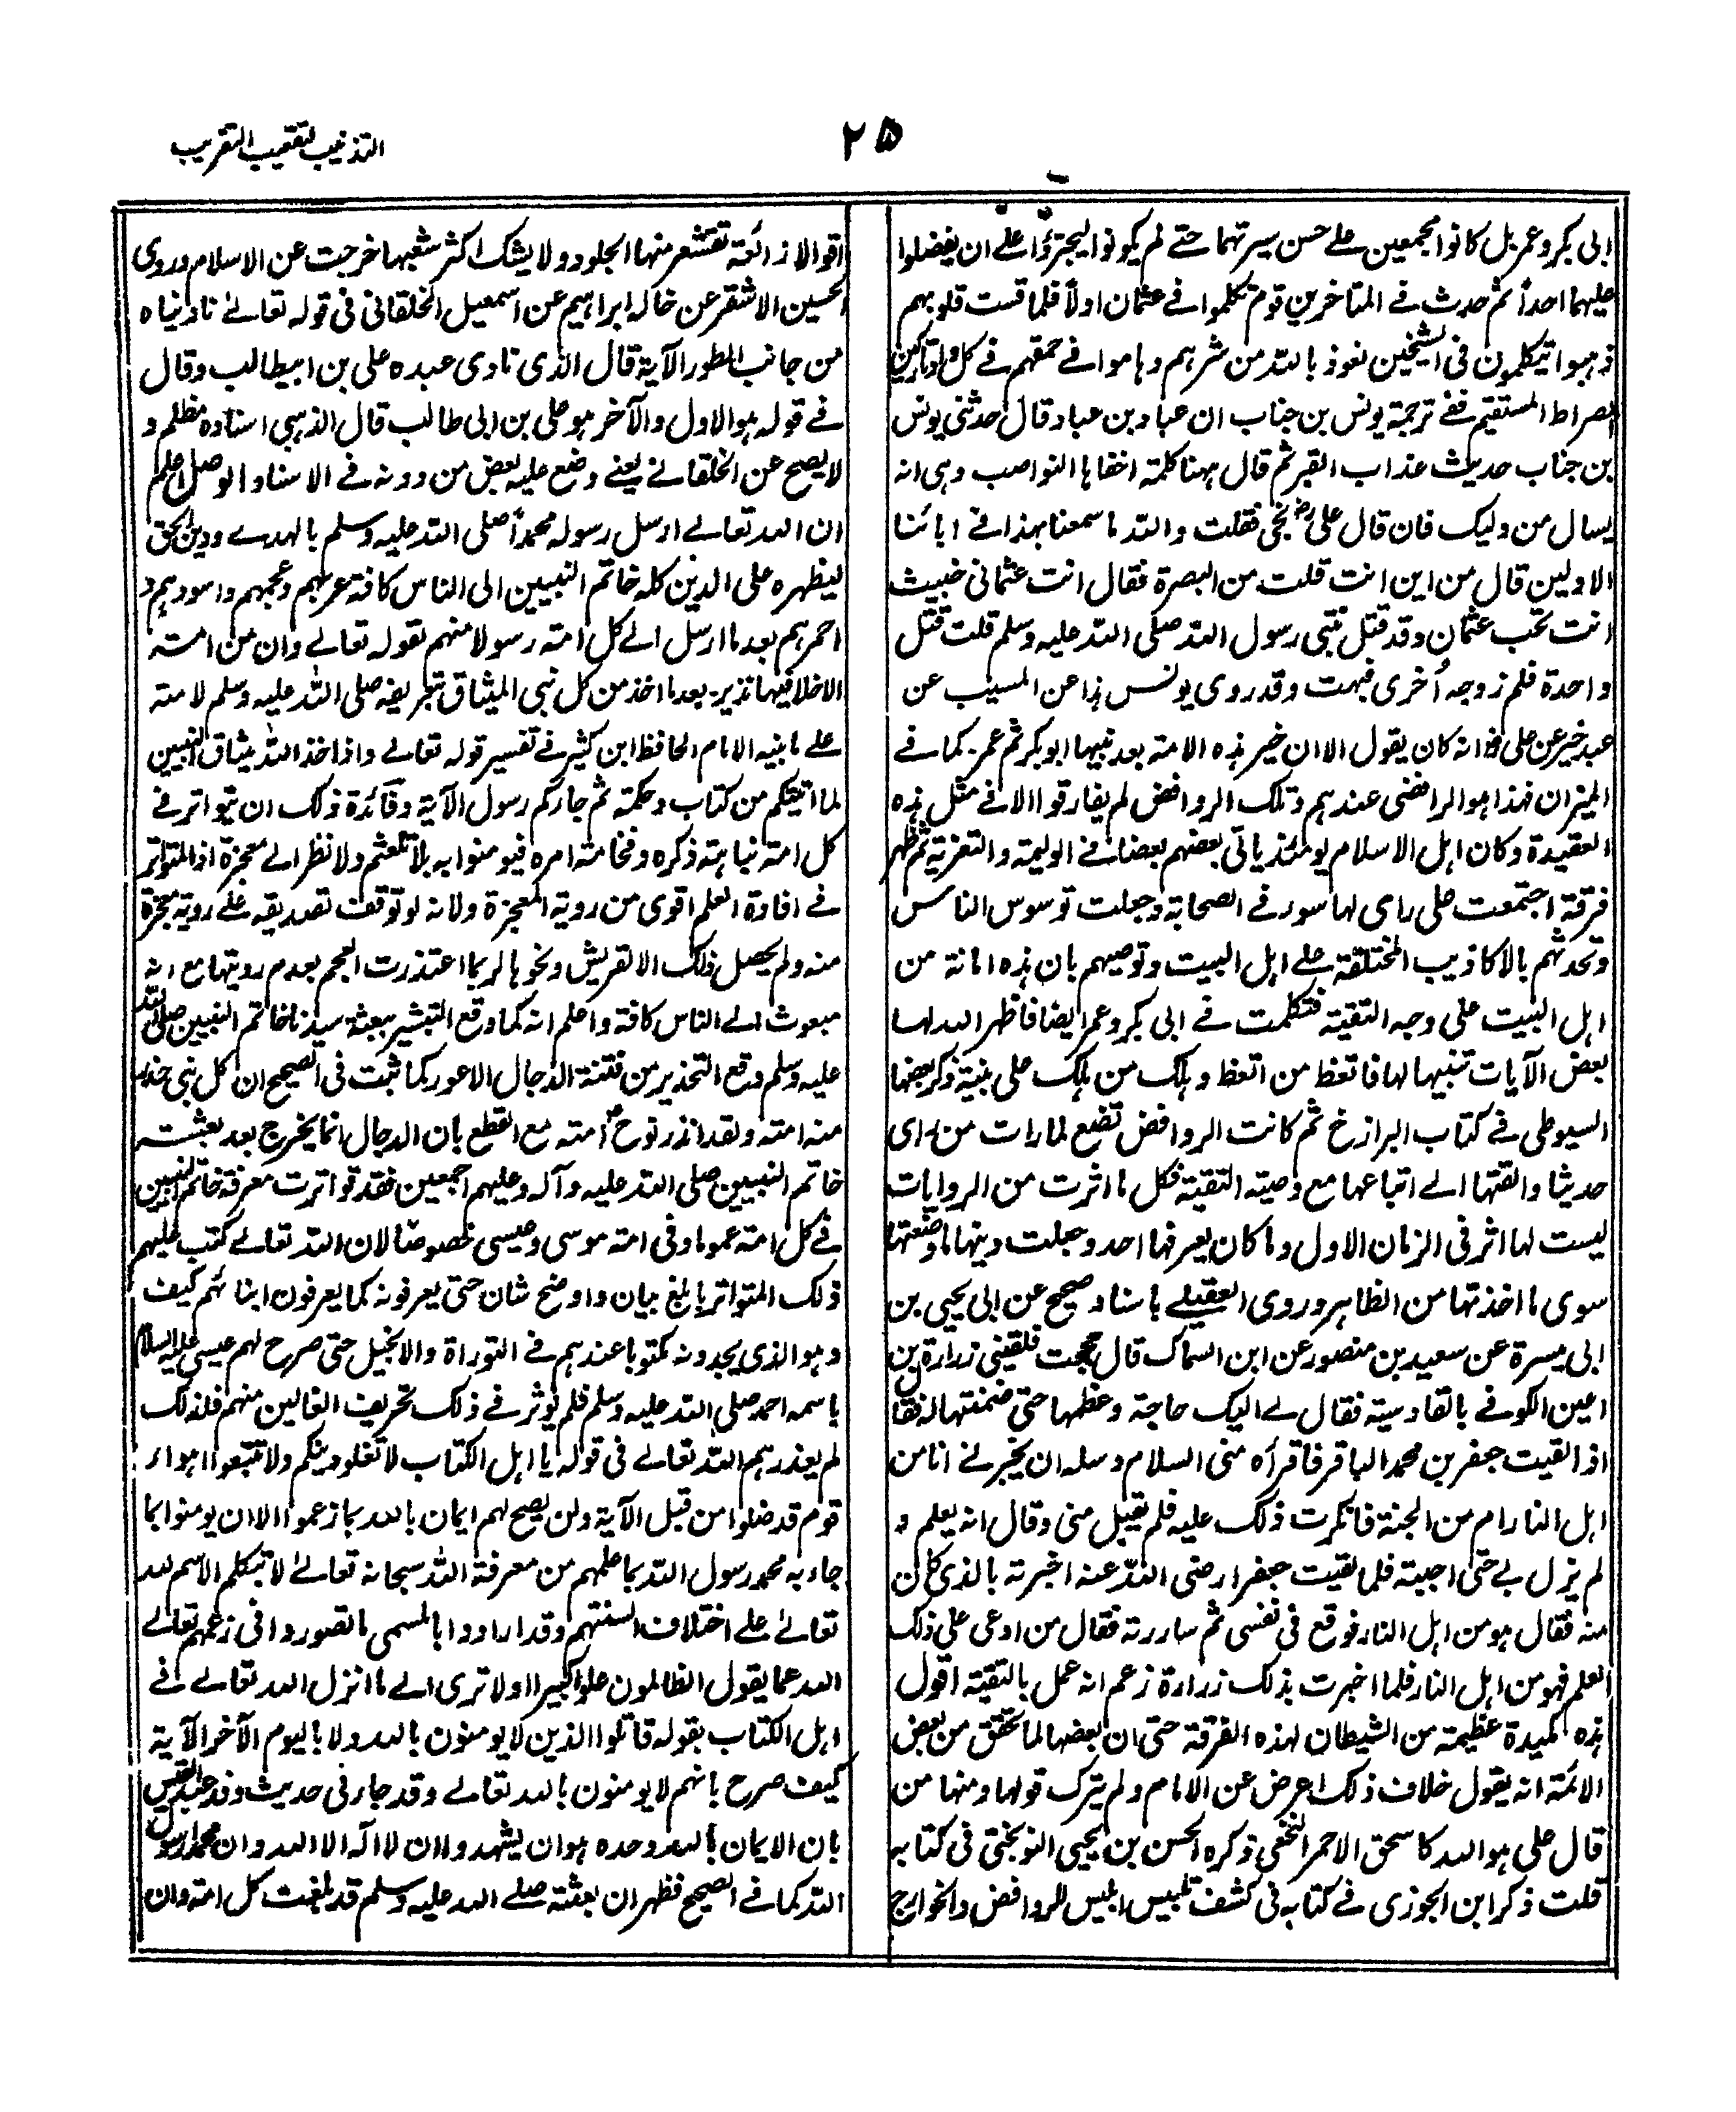 ۲۵
التذنيب لتعقيب التقريب
ابى بكر وعمر بل كانوا مجمعين على حسن سيرتهما حتے لم يكونوا ليجترؤا على ان يفضلوا
عليهما احداً ثم حدث فے المتاخرين قوم تكلموا فے عثمان اولاً فلما قست قلوبهم
ذهبوا يتكلمون فى الشيخين نعوذ بالله من شرهم وهاموا فے حمقهم فے كل واد تاركين
الصراط المستقيم ففے ترجمة يونس بن جناب ان عباد بن عباد قال حدثنى يونس
بن جناب حديث عذاب القبر ثم قال ههنا كلمة اخفاها النواصب وهى انه
يسال من وليك فان قال على رض نجى فقلت والله ما سمعنا بهذا فے ابائنا
الاولين قال من اين انت قلت من البصرة فقال انت عثمانى خبيث
انت تحب عثمان وقد قتل بنتى رسول الله صلى الله عليه وسلم قلت قتل
واحدة فلم زوجه اُخرى فبهت وقد روى يونس هذا عن المسيب عن
عبد خير عن على رض انه كان يقول الا ان خير هذه الامة بعد نبيها ابو بكر ثم عمر۔ كما فے
الميزان فهذا هو الرافضى عندهم وتلك الروافض لم يفارقوا الا فے مثل هذه
العقيدة وكان اهل الاسلام يومئذ ياتى بعضهم بعضا فے الوليمة والتعزية ثم ظهر
فرقة اجتمعت على راى لها سور فے الصحابة وجعلت توسوس الناس
وتحدثهم بالاكاذيب المختلقة على اهل البيت وتوصيهم بان هذه امانة من
اهل البيت على وجه التقية فتكلمت فے ابى بكر وعمر ايضا فاظهر الله لها
بعض الآيات تنبيها لها فاتعظ من اتعظ وهلك من هلك على بينة ذكر بعضها
السيوطى فے كتاب البرازخ ثم كانت الروافض تضع لما رات من راى
حديثا والقتها الے اتباعها مع وصية التقية فكل ما اثرت من الروايات
ليست لها اثر فى الزمان الاول وما كان يعرفها احد وجعلت دينها ما وضعتها
سوى ما اخذتها من الظاهر وروى العقيلے باسناد صحيح عن ابى يحيى بن
ابى ميسرة عن سعيد بن منصور عن ابن السماك قال حججت فلقينى زرارة بن
اعين الكوفے بالقادسية فقال لے اليك حاجة وعظمها حتى ضمنتها له فقال
اذا لقيت جعفر بن محمد الباقر فاقرأه منى السلام وسله ان يخبرنے انا من
اهل النار ام من الجنة فانكرت ذلك عليه فلم يقبل منى وقال انه يعلم و
لم يزل بے حتى اجبته فلما لقيت جعفرا رضى الله عنه اخبرته بالذى كان
منه فقال هو من اهل النار فوقع فى نفسى ثم ساررته فقال من ادعى على ذلك
العلم فهو من اهل النار فلما اخبرت بذلك زرارة زعم انه عمل بالتقية اقول
هذه لميدة عظيمة من الشيطان لهذه الفرقة حتى ان بعضها لما تحقق من بعض
الائمة انه يقول خلاف ذلك اعرض عن الامام ولم يترك قولها ومنها من
قال على هو الله كاسحق الاحمر النخعى ذكره الحسن بن يحيى النوبختى فى كتابه
قلت ذكر ابن الجوزى فے كتابه فى كشف تلبيس ابليس للروافض والخوارج
اقوالا زائغة تقشعر منها الجلود ولا يشك اكثر شعبها خرجت عن الاسلام وروى
الحسين الاشقر عن خاله ابراهيم عن اسمعيل الخلقانى فى قوله تعالے ناديناه
من جانب الطور الآية قال الذى نادى عبده على بن ابيطالب وقال
فے قوله هو الاول والآخر هو على بن ابى طالب قال الذهبى اسناده مظلم و
لا يصح عن الخلقانے يعنے وضع عليه بعض من دونه فے الاسناد الوصل اعلم
ان الله تعالے ارسل رسوله محمداً صلى الله عليه وسلم بالهدے ودين الحق
ليظهره على الدين كله خاتم النبيين الى الناس كافة عربهم وعجمهم واسودهم و
احمرهم بعد ما ارسل الے كل امة رسولا منهم لقوله تعالے وان من امة
الا خلا فيها نذير۔ بعد ما اخذ من كل نبى الميثاق بتعريفه صلى الله عليه وسلم لامته
على ما بنيه الامام الحافظ ابن كثير فے تفسير قوله تعالے واذ اخذ الله ميثاق النبيين
لما اتيتكم من كتاب وحكمة ثم جاركم رسول الآية وفائدة ذلك ان يتواتر فے
كل امة نباهة ذكره وفخامة امره فيومنوا به بلا تلعثم ولا نظر الے معجزة اذ المتواتر
فے افادة العلم اقوى من روية المعجزة ولانه لو توقف تصديقه على روية معجزة
منه ولم يحصل ذلك الا لقريش ونحوها لربما اعتذرت العجم بعدم رويتها مع انه
مبعوث الے الناس كافة واعلم انه كما وقع التبشير ببعثة سيدنا خاتم النبيين صلى الله
عليه وسلم وقع التحذير من فتنة الدجال الاعور كما ثبت فى الصحيح ان كل نبى حذر
منه امته ولقد انذر نوح امته مع القطع بان الدجال انما يخرج بعد بعثة
خاتم النبيين صلى الله عليه وآله وعليهم اجمعين فقد تواترت معرفة خاتم النبيين
فے كل امة عموما وفى امة موسى وعيسى خصوصا لان الله تعالے كتب عليهم
ذلك المتواتر بابلغ بيان واوضح شان حتى يعرفونه كما يعرفون ابنائهم كيف
وهو الذى يجدونه مكتوبا عندهم فے التوراة والانجيل حتى صرح لهم عيسى عليه السلام
باسمه احمد صلى الله عليه وسلم فلم يوثر فے ذلك تحريف الغالين منهم فلذلك
لم يعذرهم الله تعالے فى قوله يا اهل الكتاب لا تغلو دينكم ولا تتبعوا اهواء
قوم قد ضلوا من قبل الآية ولن يصح لهم ايمان بالله بما زعموا الا ان يومنوا بما
جاء به محمد رسول الله بما علمهم من معرفة الله سبحانه تعالے لا تبكلم الاسم لله
تعالے على اختلاف السنتهم وقد ارادوا بالمسمى ما تصوروا فى زعمهم تعالے
الله عما يقول الظالمون علوا كبيرا اولا ترى الے ما انزل الله تعالے فے
اهل الكتاب بقوله قاتلوا الذين لا يومنون بالله ولا باليوم الآخر الآية
كيف صرح بانهم لا يومنون بالله تعالے وقد جاء فى حديث وفد عبد القيس
بان الايمان بالله وحده هو ان يشهدوا ان لا اله الا الله وان محمدا رسول
الله كما فے الصحيح فظهر ان بعثته صلے الله عليه وسلم قد بلغت كل امة وان